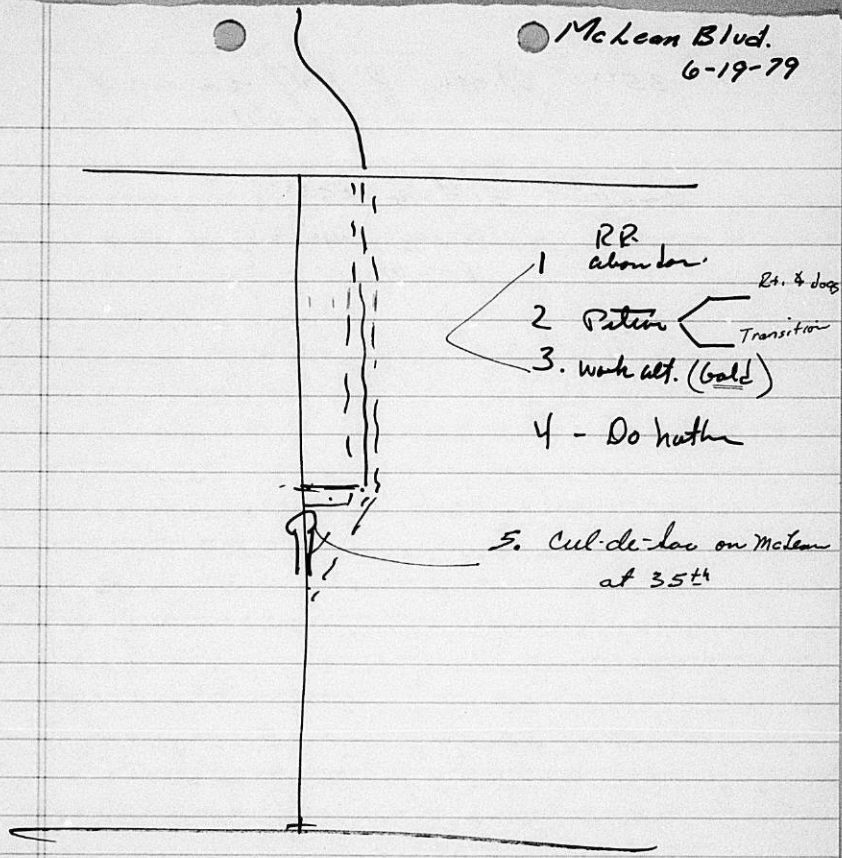 McLean Blvd.
6-19-79
1 RR
abandon.
2 Petition
Rt. & dogs
Transition
3. work alt. (Gold)
4 - Do
5. Cul-de-sac on McLean
at 35th